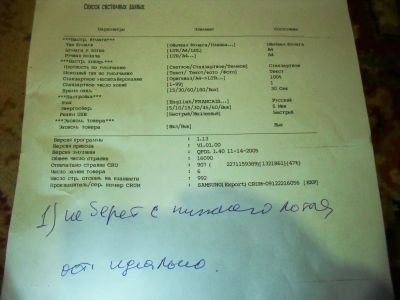 Список системных данных
Параметры Элемент Состояние
***Настр. бумаги***
Тип бумаги [Обычная бумага/Пленка...] Обычная бумага
Бумага в лотке [LTR/A4/LGL] A4
Ручная подача [LTR/A4...] A4
***Настр. копир.***
Плотность по умолчанию [Светлое/Стандартное/Темное] Стандартное
Исходный тип по умолчанию [Текст/ Текст/Фото /Фото] Текст
Стандартное масштабирование [Оригинал/A4->LTR...] 100%
Стандартное число копий [1-99] 1
Время ожид. [15/30/60/180/Вык] 30 Сек
***Настройка***
Язык [English/FRANCAIS...] Русский
Энергосбер. [5/10/15/30/45/60/Вык] 5 Мин
Режим USB [Быстрый/Медленный] Быстрый
***Эконом. тонера***
Эконом. тонера [Вкл/Вык] Вык
Версия программы : 1.13
Версия прибора : V1.01.00
Версия эмуляции : QPDL 1.40 11-14-2005
Общее число страниц : 16090
Отпечатано страниц CRU : 907
Число замен тонера : 6
Число стр. отскан. на планшете : 992
Производитель/сер. номер CRUM : SAMSUNG(Export) CRUM-09122216056
1) не берет с нижнего лотка
идеально.